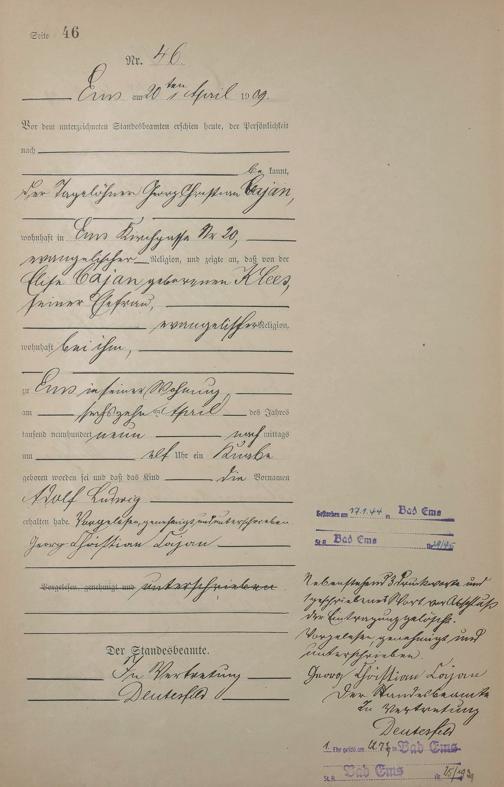 Seite 46
Nr. 46.
Ems am 20ten April 1909.
Vor dem unterzeichneten Standesbeamten erschien heute, der Persönlichkeit
nach
be kannt,
der Tagelöhner Georg Christian Cajan,
wohnhaft in Ems Kirchgasse Nr 20,
evangelischer Religion, und zeigte an, daß von der
Elise Cajan geborenen Klees,
seiner Ehefrau,
evangelischer Religion,
wohnhaft bei ihm,
zu Ems in seiner Wohnung,
am sechszehnten April des Jahres
tausend neunhundert neun nach mittags
um elf Uhr ein Knabe
geboren worden sei und daß das Kind die Vornamen
Adolf Ludwig
erhalten habe. Vorgelesen, genehmigt und unterschrieben
Georg Christian Cajan
Vorgelesen, genehmigt und unterschrieben
Der Standesbeamte.
In Vertretung
Deutesfeld
Gestorben am 27.1.44 in Bad Ems
St.A. Bad Ems Nr.
Nebenstehend 3 Druckworte und
1 geschriebenes Wort vor Abschluß
der Eintragung gelöscht.
Vorgelesen, genehmigt und
unterschrieben.
Georg Christian Cajan
Der Standesbeamte
In Vertretung
Deutesfeld
1. Ehe geschl. am in Bad Ems
St.A. Bad Ems Nr.